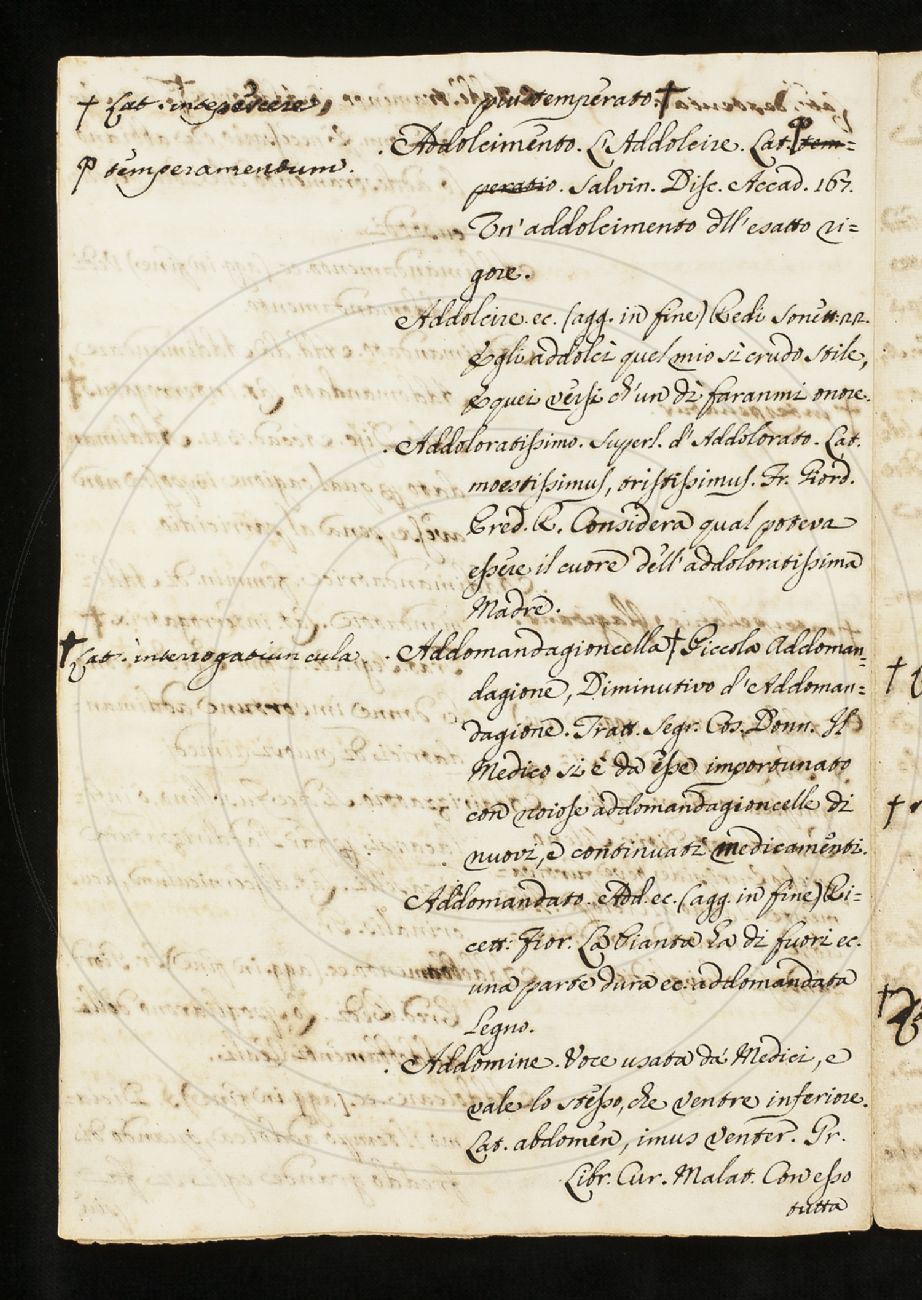 † Lat. intepescere,
₽ temperamentum.
† Lat. interrogatiuncula
più temperato. †
Addolcimento. L'Addolcire. Lat. ₽ tem=
peratio. Salvin. Disc. Accad. 167.
Un' addolcimento dell' esatto ri=
gore.
Addolcire. ec. (agg. in fine) Redi Sonett. 22.
E gli addolcì quel mio sì crudo stile,
E quei versi ch' un dì faranmi onore.
Addoloratissimo. Superl. d' Addolorato. Lat.
moestissimus, tristissimus. Fr. Giord.
Pred. R. Considera qual poteva
essere il cuore dell' addoloratissima
Madre.
Addomandagioncella † Piccola Addoman=
dagione, Diminutivo d' Addoman=
dagione. Tratt. Segr. Cos. Donn. Il
Medico si è da esse importunato
con noiose addomandagioncelle di
nuovi, e continuati medicamenti.
Addomandato. Add. ec. (agg. in fine) Ri=
cett. Fior. La Pianta ha di fuori ec.
una parte dura ec. addomandata
Legno.
Addomine. Voce usata da' Medici, e
vale lo stesso, che ventre inferiore.
Lat. abdomen, imus venter. Gr.
Libr. Cur. Malat. Con esso
tutta